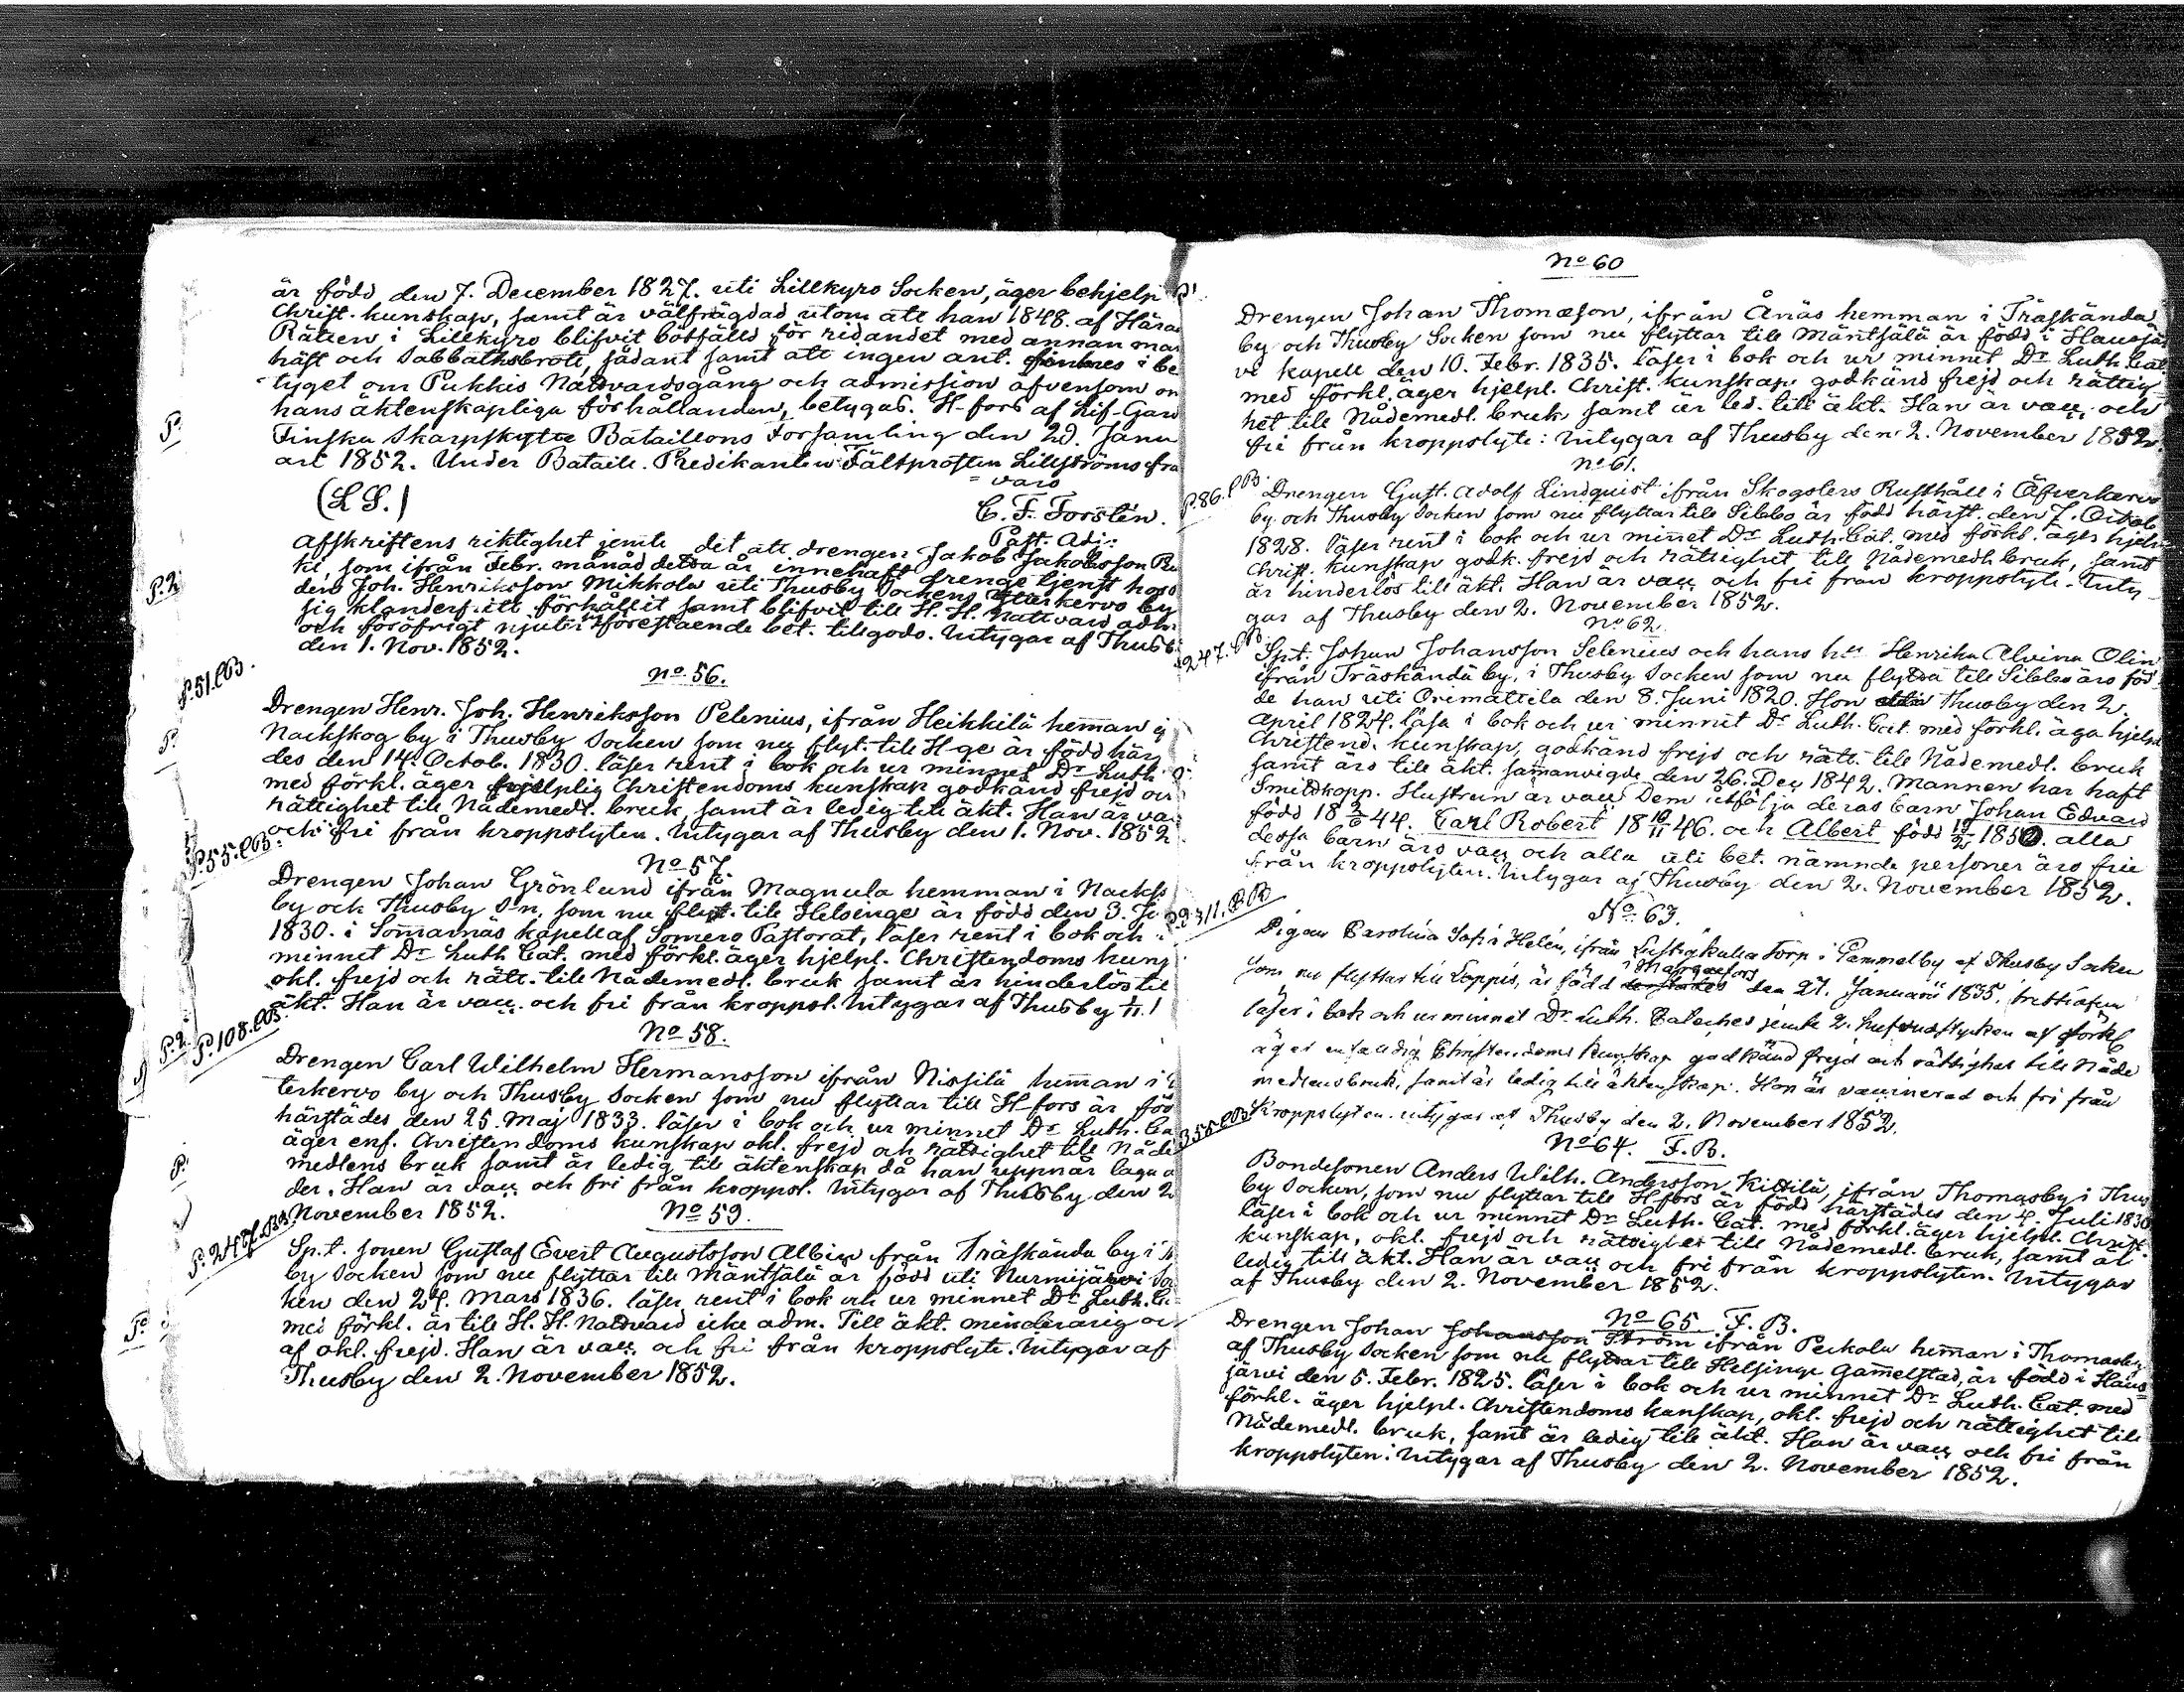 är född den 7. December 1827. uti Lillkyro Socken, äger behjelp
Christ. kunskap, samt är välfrägdad utom att han 1848. af Härad
Rätten i Lillkyro blifvit bötfälld för ridandet med annan mas
häst och Sabbathsbrott, sådant samt att ingen ant. finnes i be
tyget om Pukkis Nattvardsgång och admission äfvensom om
hans äktenskapliga förhållanden, betygas. H-fors af Lif-Gard
Finska Skarpskytte Bataillons Församling den 29. Janu
ari 1852. Under Bataill. Predikanten Fältprosten Lillströms från
varo
(L S.) C. F. Forstén.
Past. Adj:
Afskriftens riktighet jemte det att drengen Jakob Jakobsson Pu
ki, som ifrån Febr. månad detta år innehaft drenge tjenst hos
den Joh. Henriksson Mikkola uti Thusby Sockens Ytterkervo by
sig klanderfritt förhållit samt blifvit till H. H. Nattvard adm.
och föröfrigt njuter förestående bet. tillgodo. Intygar af Thusby
den 1. Nov. 1852.
P. 51. CB.
No. 56.
Drengen Henr. Joh. Henriksson Pelenius, ifrån Heikkilä hemman i
Nackskog by i Thusby Socken som nu flyt. till H-ge är född härst
des den 14. Octob. 1830. läser rent i bok och ur minnet Dr Luth.
med förkl. äger hjelplig Christendoms kunskap godkänd frejd och
rättighet till Nådemedl. bruk, samt är ledig till äkt. Han är va
och fri från kroppslyten. Intygar af Thusby den 1. Nov. 1852
P. 55. CB.
No 57.
Drengen Johan Grönlund ifrån Magnula hemman i Nacks
by och Thusby S-n, som nu flyt. till Helsinge är född den 3. Ju
1830. i Somarnäs kapell af Somero Pastorat, läser rent i bok och
minnet Dr Luth. Cat. med förkl. äger hjelpl. Christendoms kuns
okl. frejd och rätt. till Nådemedl. bruk samt är hinderlös till
äkt. Han är vacc. och fri från kroppsl. Intygar af Thusby 1/11. 1
P. 108. CB.
No 58.
Drengen Carl Wilhelm Hermansson ifrån Nissilä heman i
terkervo by och Thusby Socken som nu flyttar till H-fors är föd
härstädes den 25. Maj 1833. läser i bok och ur minnet Dr Luth. Ca
äger enf. Christendoms kunskap okl. frejd och rättighet till Nåde
medlens bruk samt är ledig till äktenskap då han uppnår laga å
der. Han är vacc. och fri från kroppsl. Intygar af Thusby den 2
November 1852.
No 59.
P. 247. CB.
Sp.t. sonen Gustaf Evert Augustsson Albin från Träskända by i
by Socken som nu flyttar till Mäntsälä är född uti Nurmijärvi So
ken den 24. Mars 1836. läser rent i bok och ur minnet Dr Luth. C
med förkl. är till H. H. Nattvard icke adm. Till äkt. minderårig oc
af okl. frejd. Han är vacc. och fri från kroppslyte. Intygar af
Thusby den 2. November 1852.
No 60
Drengen Johan Thomæson, ifrån Ånäs hemman i Träskända
by och Thusby Socken som nu flyttar till Mäntsälä är född i Hausjär
vi kapell den 10. Febr. 1835. läser i bok och ur minnet Dr Luth. Cat
med förkl. äger hjelpl. Christ. kunskap godkänd frejd och rättig
het till Nådemedl. bruk samt är led. till äkt. Han är vacc. och
fri från kroppslyte: Intygar af Thusby den 2. November 1852.
No 61.
P. 86. CB.
Drengen Gust. Adolf Lindquist ifrån Skogsters Rusthåll i Äfverkervo
by och Thusby Socken som nu flyttar till Sibbo är född härst. den 7. Octob
1828. läser rent i bok och ur minnet Dr Luth. Cat. med förkl. äger hjelp.
Christ. kunskap godk. frejd och rättighet till Nådemedl. bruk, samt
är hinderlös till äkt. Han är vacc. och fri från kroppslyte. Inty
gar af Thusby den 2. November 1852.
No 62.
247. CB.
Sp.t. Johan Johansson Selenius och hans hu Henrika Alvina Olin
ifrån Träskända by, i Thusby Socken som nu flytta till Sibbo äro föd
de han uti Orimattila den 8. Juni 1820. Hon Thusby den 2.
April 1824. läsa i bok och ur minnet Dr Luth. Cat. med förkl. äga hjelpl
Christend. kunskap, godkänd frejd och rätt. till Nådemedl. bruk
samt äro till äkt. sammanvigde den 26. Dec 1842. Mannen har haft
Smittkopp. Hustrun är vacc Dem åtfölja deras barn Johan Edvard
född 18 2/6 44. Carl Robert 18 10/11 46. och Albert född 1850. alla
dessa barn äro vacc. och alla uti bet. nämnde personer äro frie
från kroppslyten. Intygar af Thusby den 2. November 1852.
P. 311. CB
No 63.
Pigan Carolina Sofia Helén, ifrån Torp i Gammelby af Thusby Socken
i Margreefors
som nu flyttar till Loppis, är född härstädes den 27. Januarii 1835,
läser i bok och ur minnet Dr. Luth. Cateches jemte 2. hufvudstycken af förkl
äger enfaldig Christendoms kunskap godkänd frejd och rättighet till Nåde
medlens bruk, samt är ledig till äktenskap. Hon är vaccinerad och fri från
Kroppslyten. intygar af Thusby den 2. November 1852.
355. CB.
No 64. F. B.
Bondesonen Anders Wilh. Andersson Kittilä, ifrån Thomasby i Thus
by Socken, som nu flyttar till H-fors är född härstädes den 4. Juli 1830
läser i bok och ur minnet Dr Luth. Cat. med förkl. äger hjelpl. Christ.
kunskap, okl. frejd och rättighet till Nådemedl. bruk, samt är
ledig till äkt. Han är vacc och fri från kroppslyten. Intygar
af Thusby den 2. November 1852.
No 65 F. B.
Drengen Johan Johansson Ström ifrån Peckola heman i Thomasby
af Thusby Socken som nu flyttar till Helsinge Gamelstad, är född i Haus=
järvi den 5. Febr. 1825. läser i bok och ur minnet Dr Luth. Cat. med
förkl. äger hjelpl. Christendoms kunskap, okl. frejd och rättighet till
Nådemedl. bruk, samt är ledig till äkt. Han är vacc och fri från
kroppslyten. Intygar af Thusby den 2. November 1852.